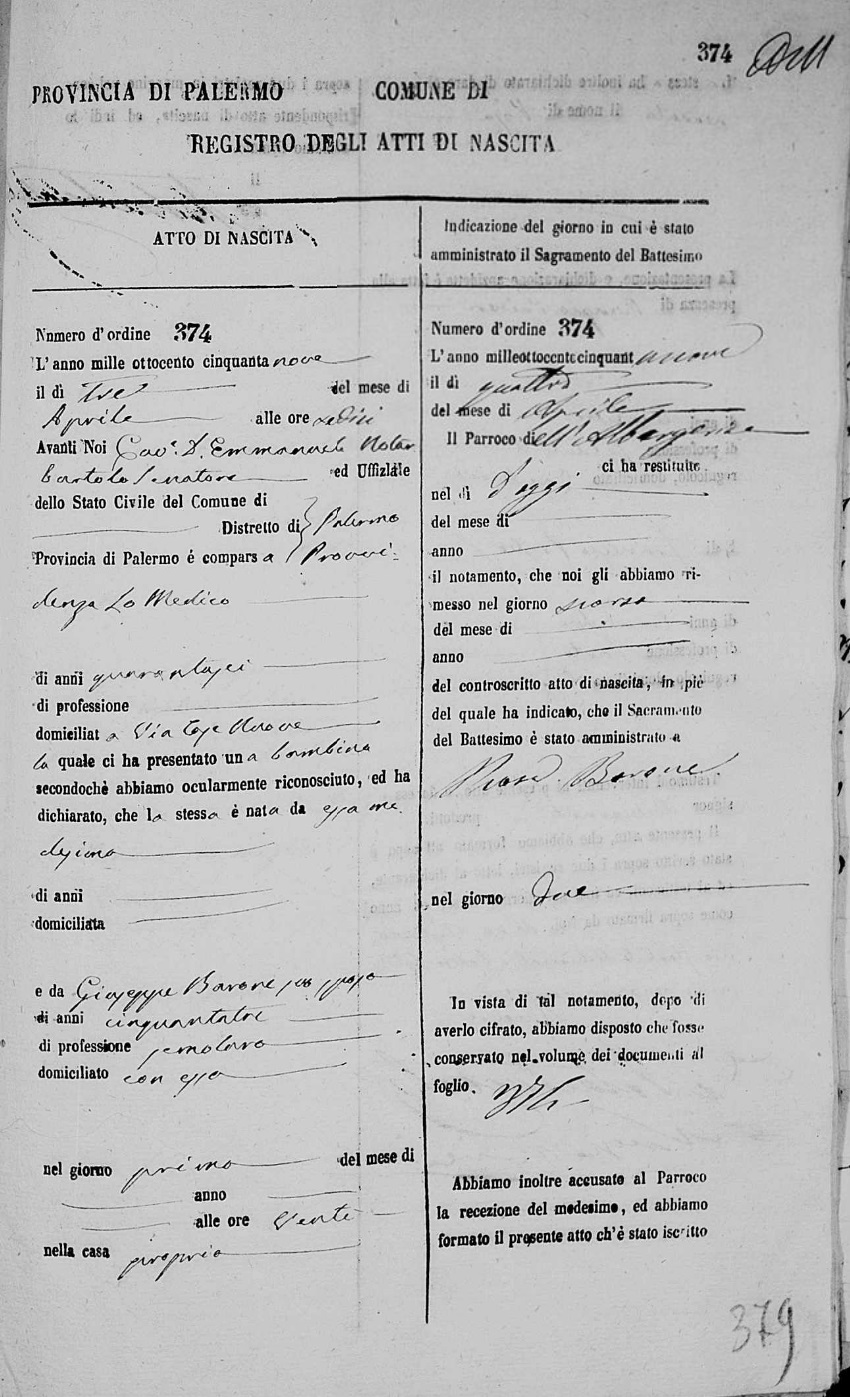 374
PROVINCIA DI PALERMO COMUNE DI
REGISTRO DEGLI ATTI DI NASCITA
ATTO DI NASCITA
Nnmero d'ordine 374
L'anno mille ottocento cinquanta nove
il dì tre del mese di
Aprile alle ore sedici
Avanti Noi Cav. D. Emmanuele Notar
bartolo Senatore ed Uffiziale
dello Stato Civile del Comune di
Distretto di Palermo
Provincia di Palermo é compars a Provvi-
denza Lo Medico
di anni quarantasei
di professione
domiciliat a Via Nuova
la quale ci ha presentato una bambina
secondochè abbiamo ocularmente riconosciuto, ed ha
dichiarato, che la stessa è nata da essa me
desima
di anni
domiciliata
e da Giuseppe Barone suo sposo
di anni cinquantatre
di professione semolaro
domiciliato con essa
nel giorno primo del mese di
anno
alle ore venti
nella casa propria
Indicazione del giorno in cui è stato
amministrato il Sagramento del Battesimo
Numero d'ordine 374
L'anno milleottocentocinquant anove
il dì quattro
del mese di Aprile
Il Parroco dell'Albergaria
ci ha restituito
nel dì d'oggi
del mese di
anno
il notamento, che noi gli abbiamo ri-
messo nel giorno scorso
del mese di
anno
del controscritto atto di nascita, in piè
del quale ha indicato, che il Sacramento
del Battesimo è stato amministrato a
Rosa Barone
nel giorno due
In vista di tal notamento, dopo di
averlo cifrato, abbiamo disposto che fosse
conservato nel volume dei documenti al
foglio. 374
Abbiamo inoltre accusato al Parroco
la recezione del medesimo, ed abbiamo
formato il presente atto ch'è stato iscritto
379